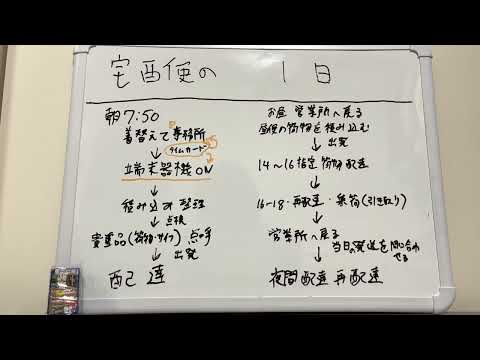 宅配便の 1日
朝7:50
着替えて事務所
タイムカード
端末器機ON
積み込み 整理
点検
貴重品(荷物・サイフ) 点呼
出発
配達
お昼 営業所へ戻る
昼便の荷物を積み込む
出発
14〜16指定 荷物配達
16-18・再配達・集荷(引き取り)
営業所へ戻る
当日の発送を間に合わせる
夜間配達 再配達